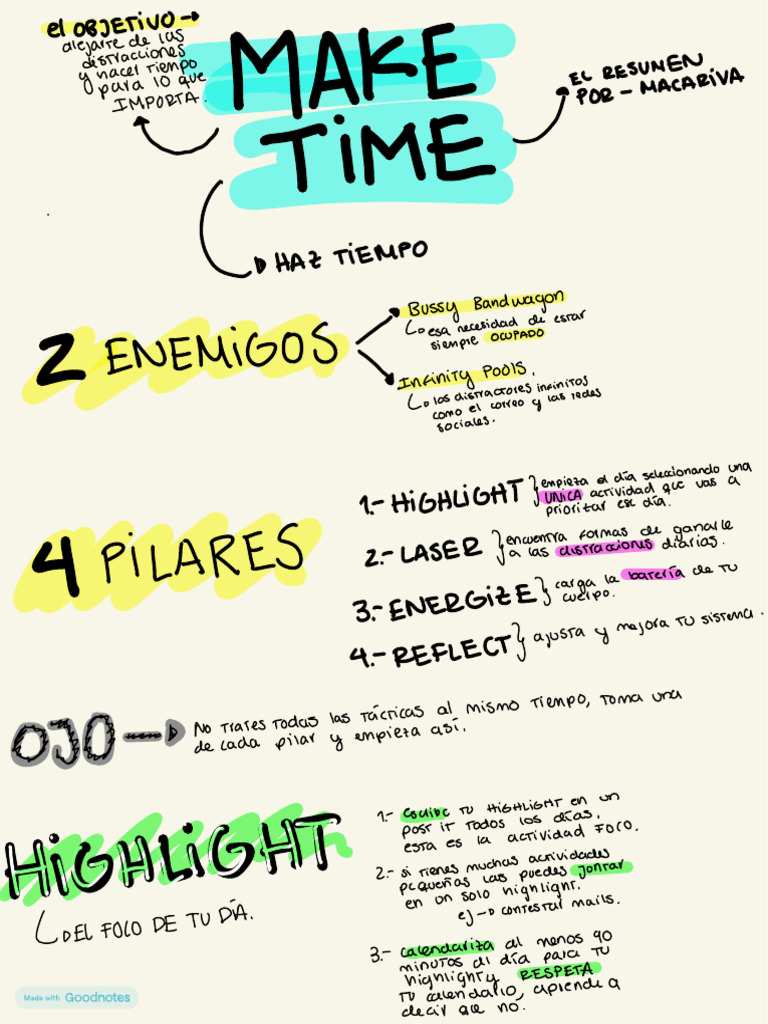 el OBJETIVO
alejarte de las
distracciones
y hacer tiempo
para lo que
IMPORTA.
MAKE
TIME
EL RESUMEN
POR - MACARIVA
HAZ TIEMPO
2 ENEMIGOS
Bussy Bandwagon
esa necesidad de estar
siempre OCUPADO
Infinity Pools.
los distractores infinitos
como el correo y las redes
sociales.
4 PILARES
1.- HIGHLIGHT
empieza el día seleccionando una
UNICA actividad que vas a
priorizar ese día.
2.- LASER
encuentra formas de ganarle
a las distracciones diarias.
3.- ENERGIZE
carga la batería de tu
cuerpo.
4.- REFLECT
ajusta y mejora tu sistema.
OJO
No trates todas las tácticas al mismo tiempo, toma una
de cada pilar y empieza así.
HIGHLIGHT
EL FOCO DE TU DÍA.
1.- Escribe tu HIGHLIGHT en un
post it todos los días,
esta es la actividad FOCO.
2.- si tienes muchas actividades
pequeñas las puedes juntar
en un solo highlight.
ej contestar mails.
3.- calendariza al menos 90
minutos al día para tu
highlight y RESPETA
tu calendario, aprende a
decir que no.
Made with Goodnotes